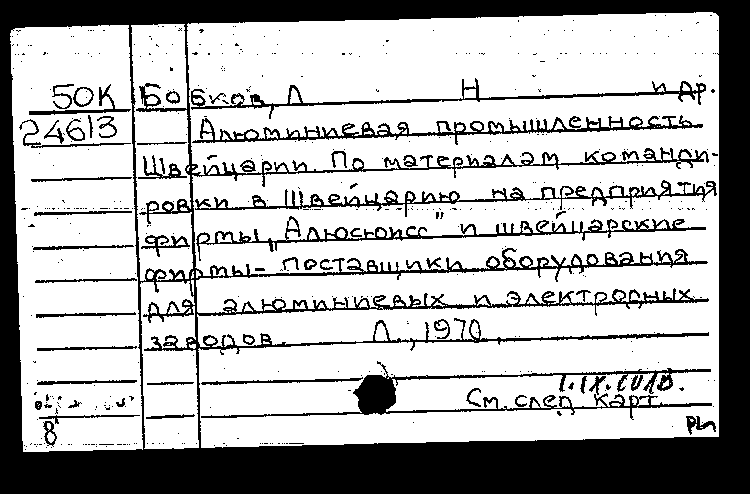 50К Бобков, Л Н и др.
24613 Алюминиевая промышленность
Швейцарии. По материалам команди-
ровки в Швейцарию на предприятия
фирмы „Алюсюисс" и швейцарские
фирмы- поставщики оборудования
для алюминиевых и электродных
заводов. Л., 1970,
См. след карт.
8